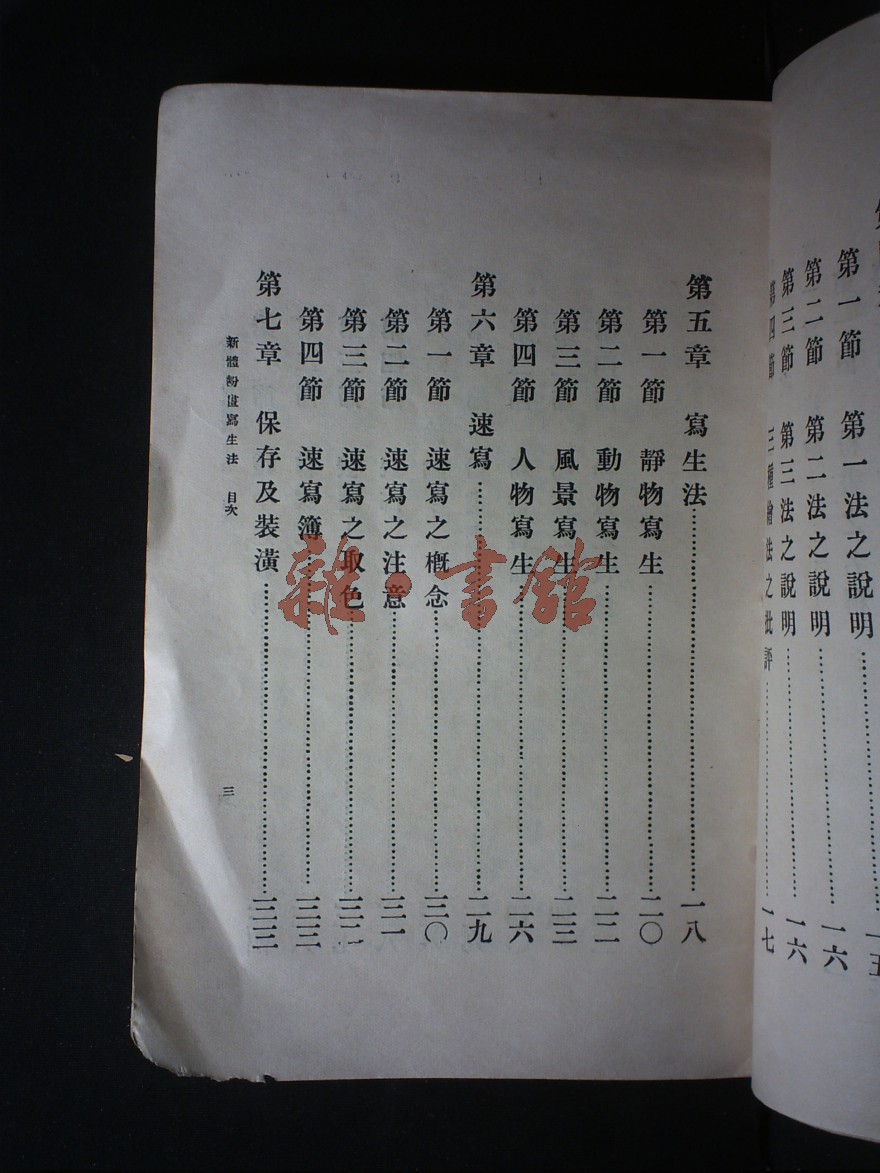 第一節　第一法之說明
第二節　第二法之說明……一六
第三節　第三法之說明……一六
第四節　三種繪法之批評……一七
第五章　寫生法……一八
第一節　靜物寫生……二〇
第二節　動物寫生……二二
第三節　風景寫生……二三
第四節　人物寫生……二六
第六章　速寫……二九
第一節　速寫之概念……三〇
第二節　速寫之注意……三一
第三節　速寫之取色……三二
第四節　速寫簿……三三
第七章　保存及裝潢……三三
新體粉畫寫生法　目次
三
雜·書館